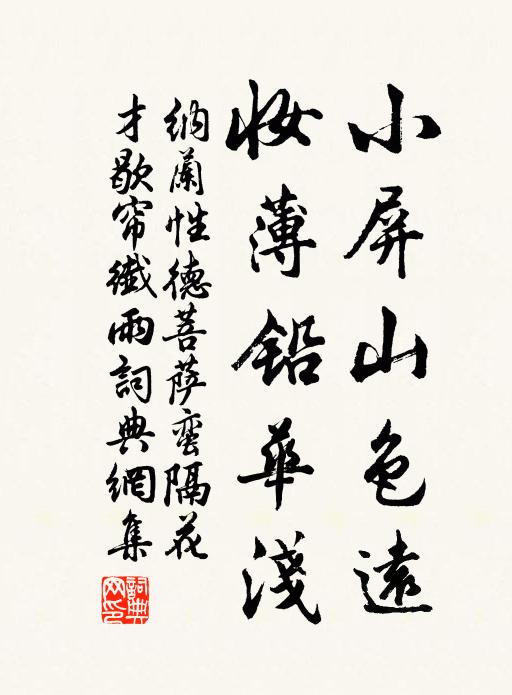 小屏山色遠
妝薄鉛華淺
納蘭性德菩薩蠻隔花
才歇帘纖雨詞典網集
詞典
网印